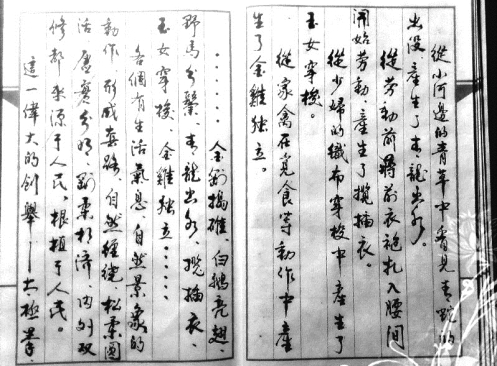 從小河邊的青草中看見青蛇的
出沒，產生了青龍出水。
從勞動前將前衣袍扎入腰间
開始勞動，產生了攬插衣。
從少婦的織布穿梭中產生了
玉女穿梭。
從家禽在覓食等動作中產
生了金雞独立。
······金刚搗碓、白鵝亮翅、
野馬分鬃、青龍出水、攬插衣、
玉女穿梭、金雞独立·····
各個有生活氣息、自然景象的
動作形成套路，自然纏绕松柔圆
活，虚實分明，剛柔相济，内外双
修都来源于人民，根植于人民。
這一偉大的创舉——太極拳，